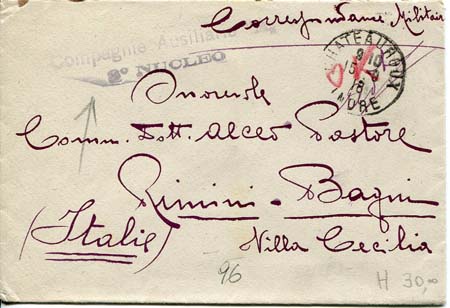 Correspondance Militair
Compagnie Ausiliari
8° NUCLEO
CHATEAUROUX
9 10
15 8
18
INDRE
Onorevole
Comm. Dott. Alceo Pastore
Rimini - Bagni
(Italie)
Villa Cecilia
96
H 30,00